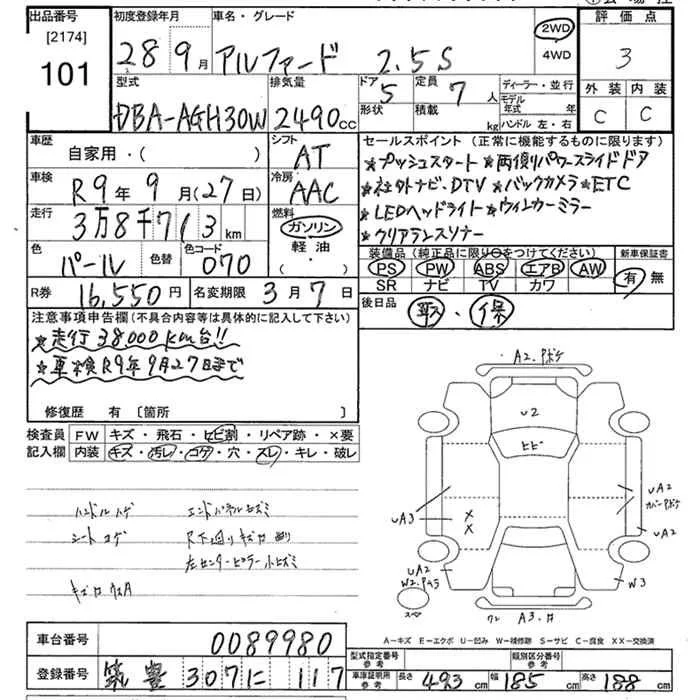 出品番号 初度登録年月 車名・グレード 2WD 評価点
[2174]
101 28 9月 アルファード 2.5S 4WD 3
型式 排気量 ドア 5 定員 7人 ディーラー・並行 外装 内装
DBA-AGH30W 2490cc 形状 積載 kg モデル年式 年 ハンドル 左・右 C C
車歴 シフト セールスポイント(正常に機能するものに限ります)
自家用・( ) AT ★プッシュスタート★両側パワースライドドア
車検 冷房 ★社外ナビ、DTV★バックカメラ★ETC
R9年9月(27日) AAC ★LEDヘッドライト★ウィンカーミラー
走行 燃料 ★クリアランスソナー
3万8千713km ガソリン
色 色替 色コード 軽油・( ) 装備品(純正品に限り○をつけてください) 新車保証書
パール 070 PS PW ABS エアB AW 有 無
SR ナビ TV カワ
R券 16,550円 名変期限 3月7日 後日品 取・保
注意事項申告欄(不具合内容等は具体的に記入して下さい)
★走行38,000km台!!
★車検R9年9月27日まで
修復歴 有 [箇所 ]
検査員記入欄 FW キズ・飛石・ヒビ割・リペア跡・×要
内装 キズ・汚レ・コゲ・穴・スレ・キレ・破レ
ハンドルハゲ エンドパネルヒズミ
シートコゲ R下廻りキズ
左センターピラー小ヒズミ
A2.
U2
ヒビ
UA3
×
×
UA2
UA2
UA2
W2.
W3
スペ
A3.
A-キズ E-エクボ U-凹み W-補修跡 S-サビ C-腐食 XX-交換済
車台番号 0089980
型式指定番号 参考 類別区分番号 参考
登録番号 筑豊 307 に 117
車庫証明用 参考 長さ 493cm 幅 185cm 高さ 188cm